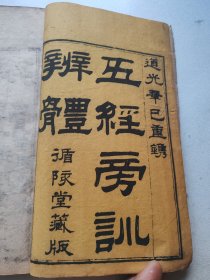 道光癸巳重鐫
五經旁訓
辨體
循陔堂藏版